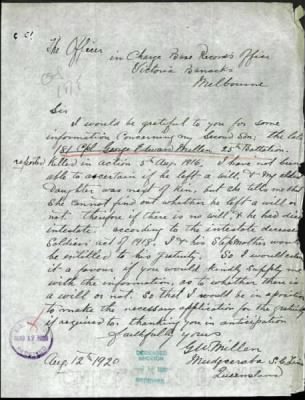 The Officer
in Charge Base Records Office
Victoria Barracks
Melbourne
Sir
I would be grateful to you for some
information concerning my Second Son, the late
181 Cpl George Edward Millen 25th Battalion.
reported Killed in action 5th Aug. 1916, I have not been
able to ascertain if he left a will, & my eldest
Daughter was next of kin, but she tells me that
She cannot find out whether he left a will or
not. Therefore if there is no will, & he had died
intestate. according to the intestate deceased
Soldiers act of 1918. I & his Stepmother would
be entitled to his gratuity. So I would esteem it
a favour if you would kindly supply me
with the information, as to whether there is
a will or not. So that I would be in a position
to make the necessary application for the gratuity
if required to. thanking you in anticipation
faithfully yours
G W Millen
Aug. 12th 1920
Mudgeeraba S. C. Line
Queensland